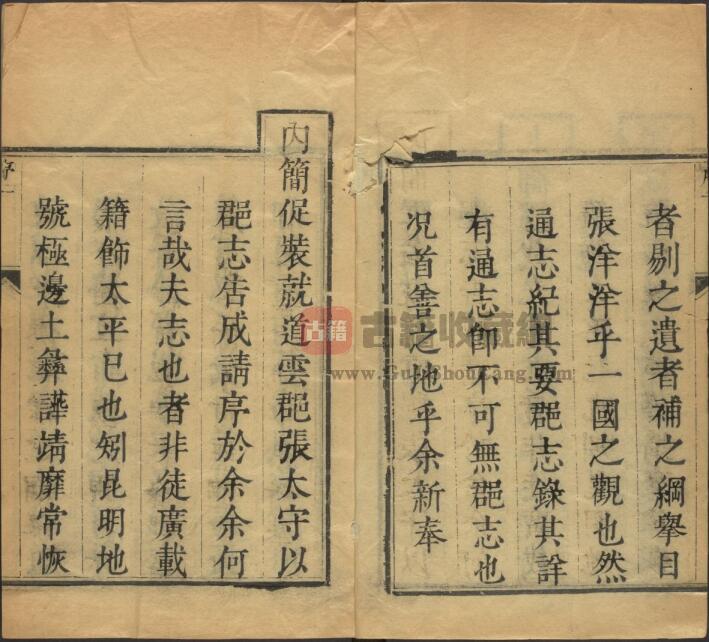 者剔之遺者補之綱擧目
張洋洋乎一國之觀也然
通志紀其要郡志錄其詳
有通志卽不可無郡志也
况首善之地乎余新奉
內簡促裝就道雲郡張太守以
郡志告成請序於余余何
言哉夫志也者非徒廣載
籍飾太平已也矧昆明地
號極邊土彝譁靖靡常恢
序
古籍
古籍收藏網
www.GuJiShouCang.com